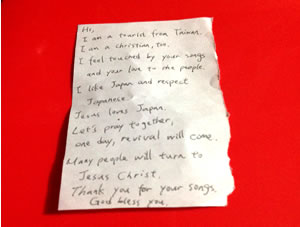 Hi,
I am a tourist from Taiwan.
I am a christian, too.
I feel touched by your songs
and your love to the people.
I like Japan and respect
Japanese.
Jesus loves Japan.
Let's pray together,
one day, revival will come.
Many people will turn to
Jesus Christ.
Thank you for your songs.
God bless you.